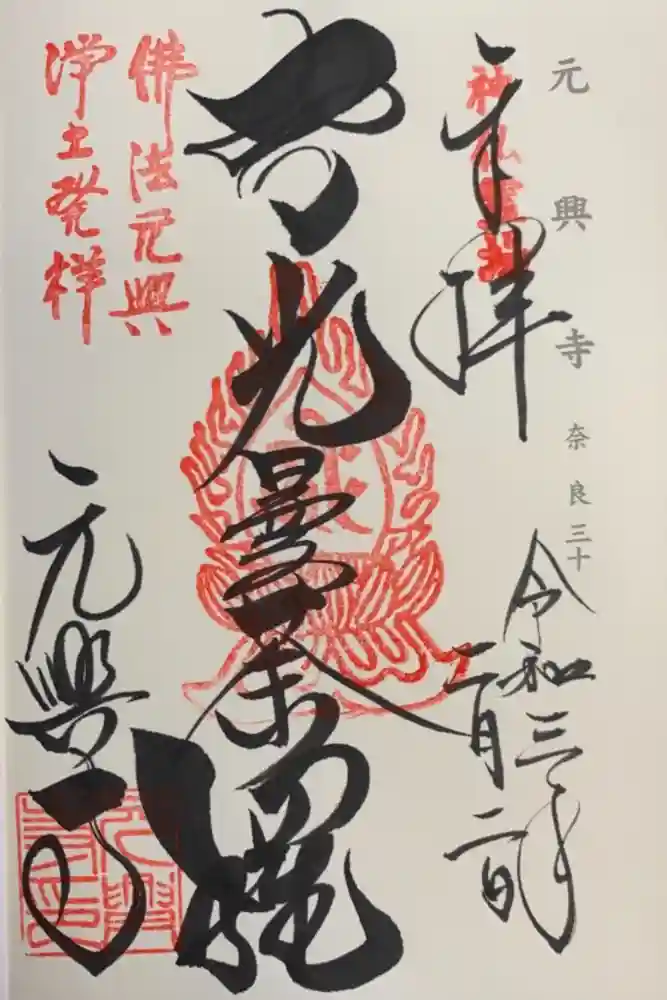 元興寺 奈良三十
神仏霊場
奉拝
令和三年
二月二日
智光曼荼羅
佛法元興
浄土発祥
元興寺